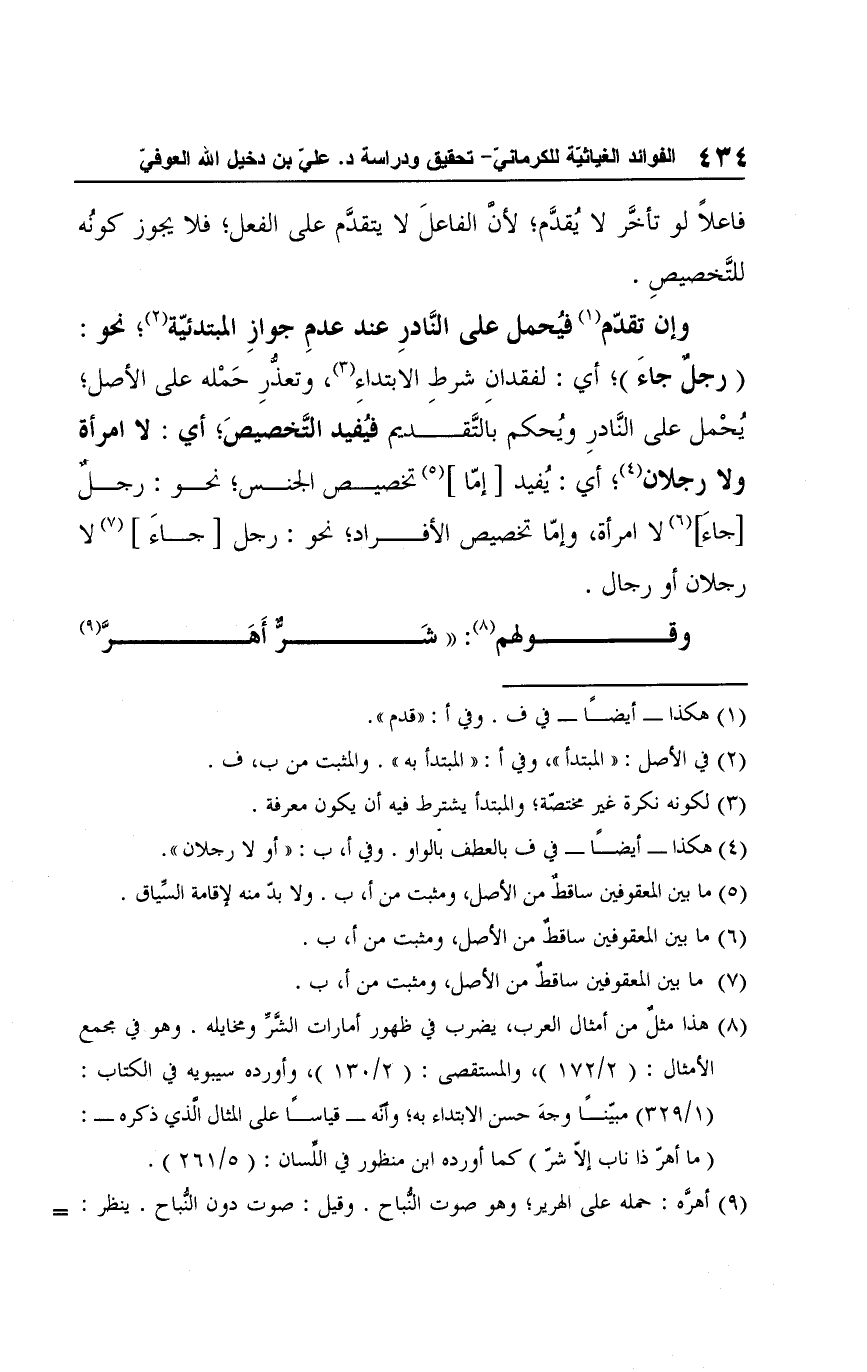 ٤٣٤ الفوائد الغياثيّة للكرمانيّ- تحقيق ودراسة د. عليّ بن دخيل الله العوفيّ
فاعلاً لو تأخَّر لا يُقدَّم؛ لأنَّ الفاعلَ لا يتقدَّم على الفعل؛ فلا يجوز كونُه
للتَّخصيصِ .
وإن تقدّم(١) فيُحمل على النَّادرِ عند عدمِ جوازِ المبتدئيّة(٢)؛ نحو :
( رجلٌ جاءَ )؛ أي : لفقدانِ شرطِ الابتداءِ(٣)، وتعذُّرِ حَمْله على الأصل؛
يُحْمل على النَّادرِ ويُحكم بالتَّقـــديم فيُفيد التَّخصيصَ؛ أي : لا امرأة
ولا رجلان(٤)؛ أي : يُفيد [ إمّا ](٥) تخصيـــص الجنـــس؛ نحـــو : رجـــلٌ
[جاءَ](٦) لا امرأة، وإمّا تخصيص الأفـــراد؛ نحو : رجل [ جـــاءَ ](٧) لا
رجلان أو رجال .
وقـــــولهم(٨): « شَـــــرٌّ أَهَـــــرَّ(٩)
(١) هكذا ــ أيضـــاً ــ في ف . وفي أ : «قدم».
(٢) في الأصل : « المبتدأ »، وفي أ : « المبتدأ به » . والمثبت من ب، ف .
(٣) لكونه نكرة غير مختصّة؛ والمبتدأ يشترط فيه أن يكون معرفة .
(٤) هكذا ــ أيضـــاً ــ في ف بالعطف بالواو . وفي أ، ب : « أو لا رجلان».
(٥) ما بين المعقوفين ساقطٌ من الأصل، ومثبت من أ، ب . ولا بدّ منه لإقامة السِّياق .
(٦) ما بين المعقوفين ساقطٌ من الأصل، ومثبت من أ، ب .
(٧) ما بين المعقوفين ساقطٌ من الأصل، ومثبت من أ، ب .
(٨) هذا مثلٌ من أمثال العرب، يضرب في ظهور أمارات الشَّرِّ ومخايله . وهو في مجمع
الأمثال : ( ١٧٢/٢ )، والمستقصى : ( ١٣٠/٢ )، وأورده سيبويه في الكتاب :
(٣٢٩/١) مبيّنـــاً وجهَ حسن الابتداء به؛ وأنّه ــ قياســـاً على المثال الّذي ذكره ــ :
( ما أهرّ ذا ناب إلاّ شرّ ) كما أورده ابن منظور في اللِّسان : ( ٢٦١/٥ ) .
(٩) أهرَّه : حمله على الهرير؛ وهو صوت النُّباح . وقيل : صوت دون النُّباح . ينظر : =